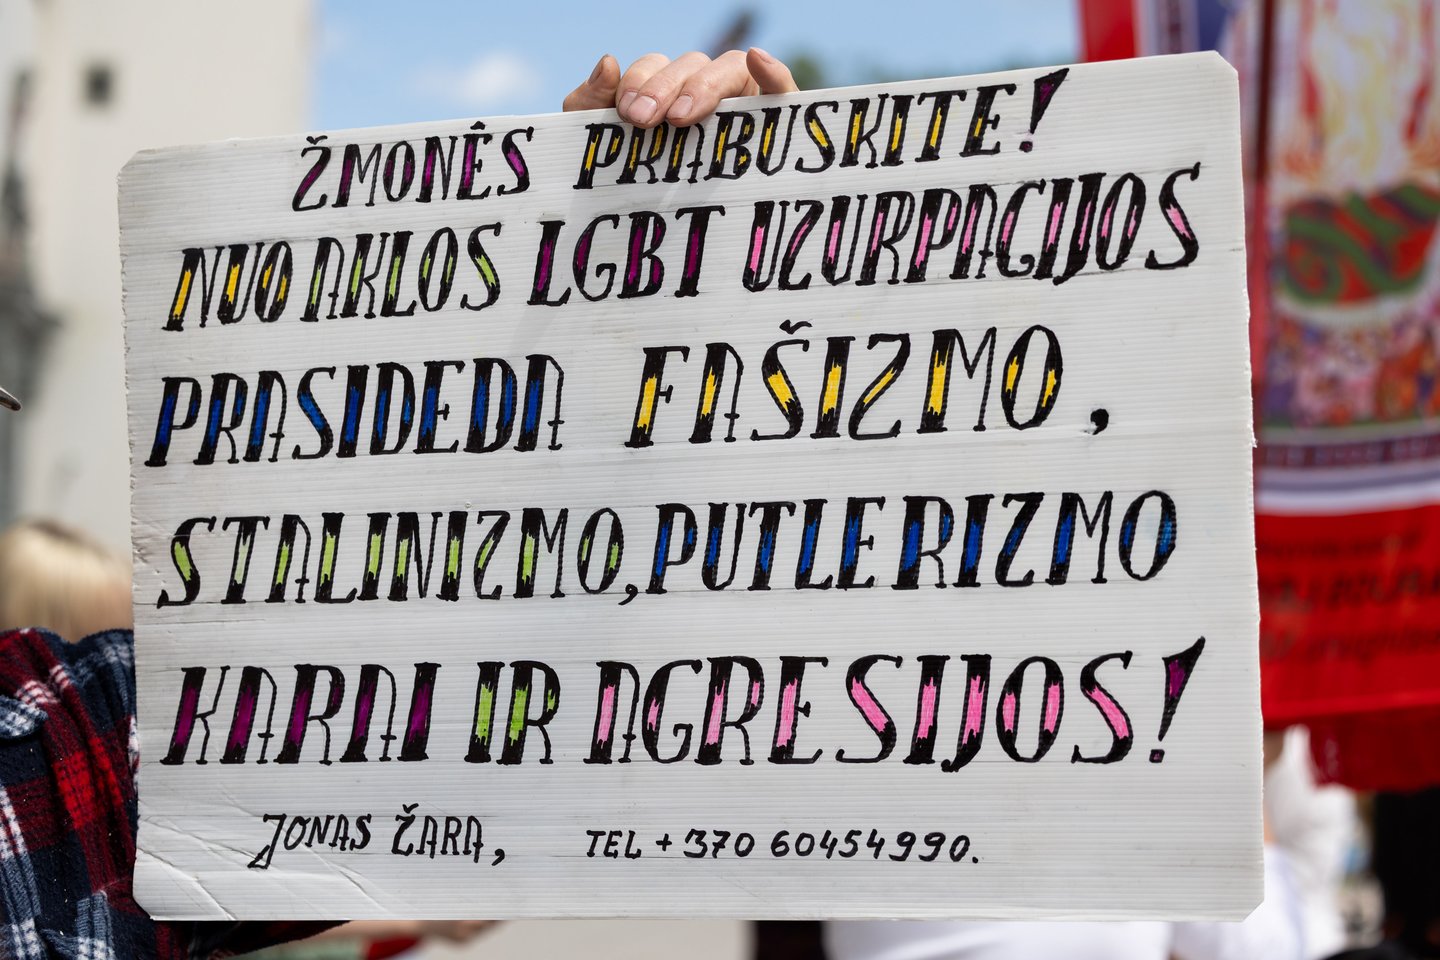 ŽMONÊS PRABUSKITE!
NUO AKLOS LGBT UZURPACIJOS
PRASIDEDA FAŠIZMO,
STALINIZMO, PUTLERIZMO
KARAI IR AGRESIJOS!
JONAS ŽARA, TEL +370 60454990.